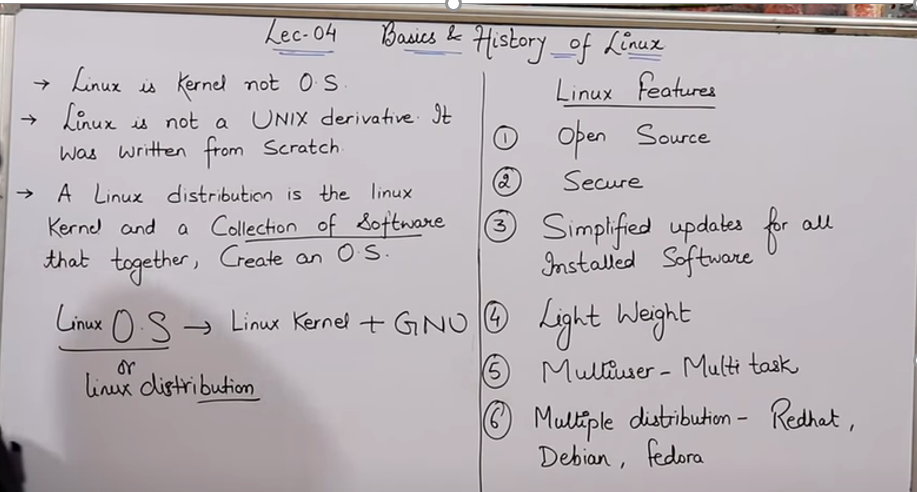 Lec-04 Basics & History of Linux
→ Linux is Kernel not O.S.
→ Linux is not a UNIX derivative. It
was written from Scratch.
→ A Linux distribution is the linux
Kernel and a Collection of Software
that together, Create an O.S.
Linux O.S → Linux Kernel + GNU
or
linux distribution
Linux Features
① Open Source
② Secure
③ Simplified updates for all
Installed Software
④ Light Weight
⑤ Multiuser - Multi task
⑥ Multiple distribution - Redhat,
Debian, fedora